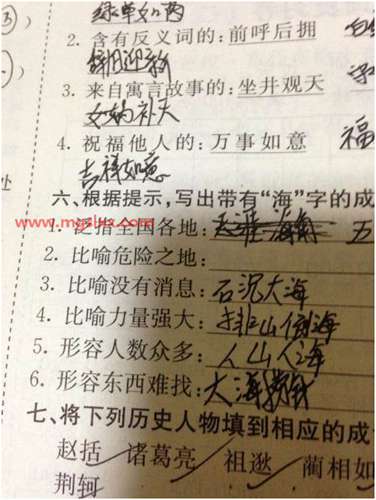 ③ 绿草如
2. 含有反义词的:前呼后拥
辞旧迎新
3. 来自寓言故事的:坐井观天
女娲补天
4. 祝福他人的:万事如意 福
吉祥如意
处
六、根据提示,写出带有“海”字的成
1. 泛指全国各地:天涯海角 五
2. 比喻危险之地:
3. 比喻没有消息:石沉大海
4. 比喻力量强大:排山倒海
5. 形容人数众多:人山人海
6. 形容东西难找:大海捞针
七、将下列历史人物填到相应的成
赵括 诸葛亮 祖逖 蔺相如
荆轲